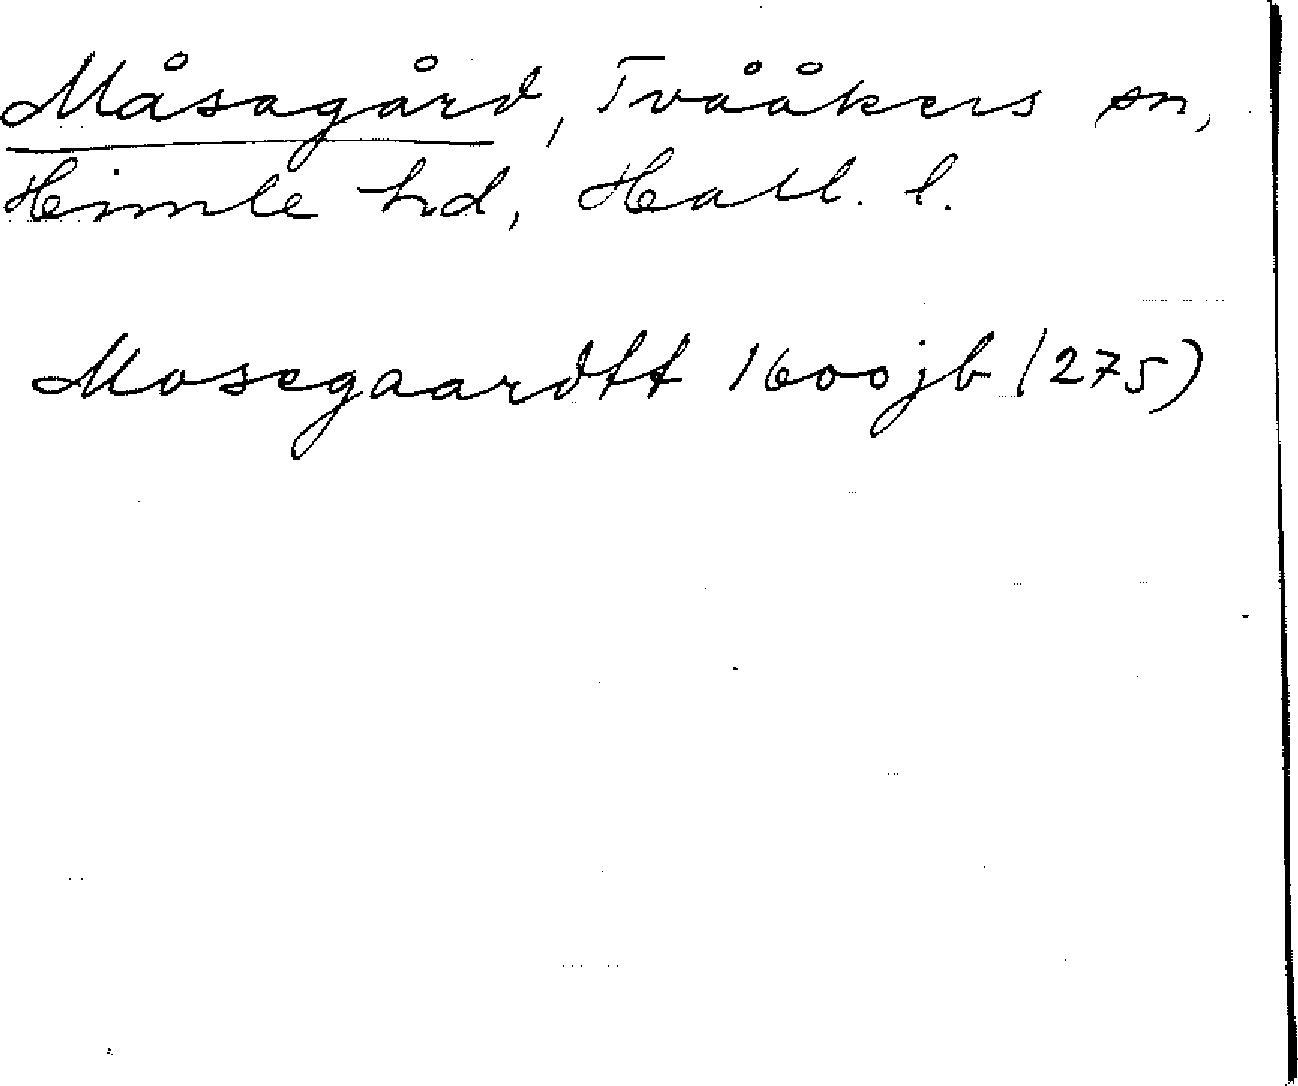 Måsagård, Tvååkers sn,
Himle hd, Hall. l.
Mosegaardtt 1600 jb (275)